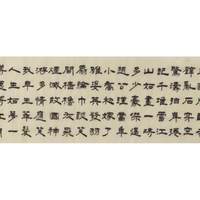 亂石穿空
驚濤拍岸捲
起千堆雪江
山如畫一時
多少豪傑遙
想公瑾當年
小喬初嫁了
雄姿英發羽
扇綸巾談笑
間檣櫓灰飛
煙滅故國神
游多情應笑
我早生華髮
人生如夢一
尊還酹江月